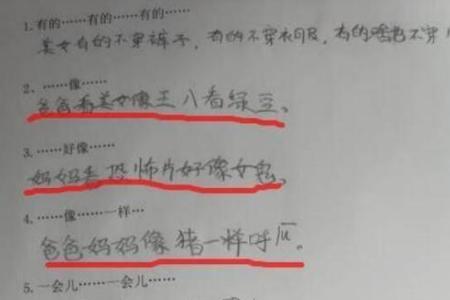 1.有的……有的……有的……
美女有的不穿裤子，有的不穿衣服，有的啥都不穿
2、……像……
爸爸看美女像王八看绿豆。
3、……好像……
妈妈看恐怖片好像女鬼。
4、……像………一样…
爸爸妈妈像猪一样呼
5、一会儿……一会儿……